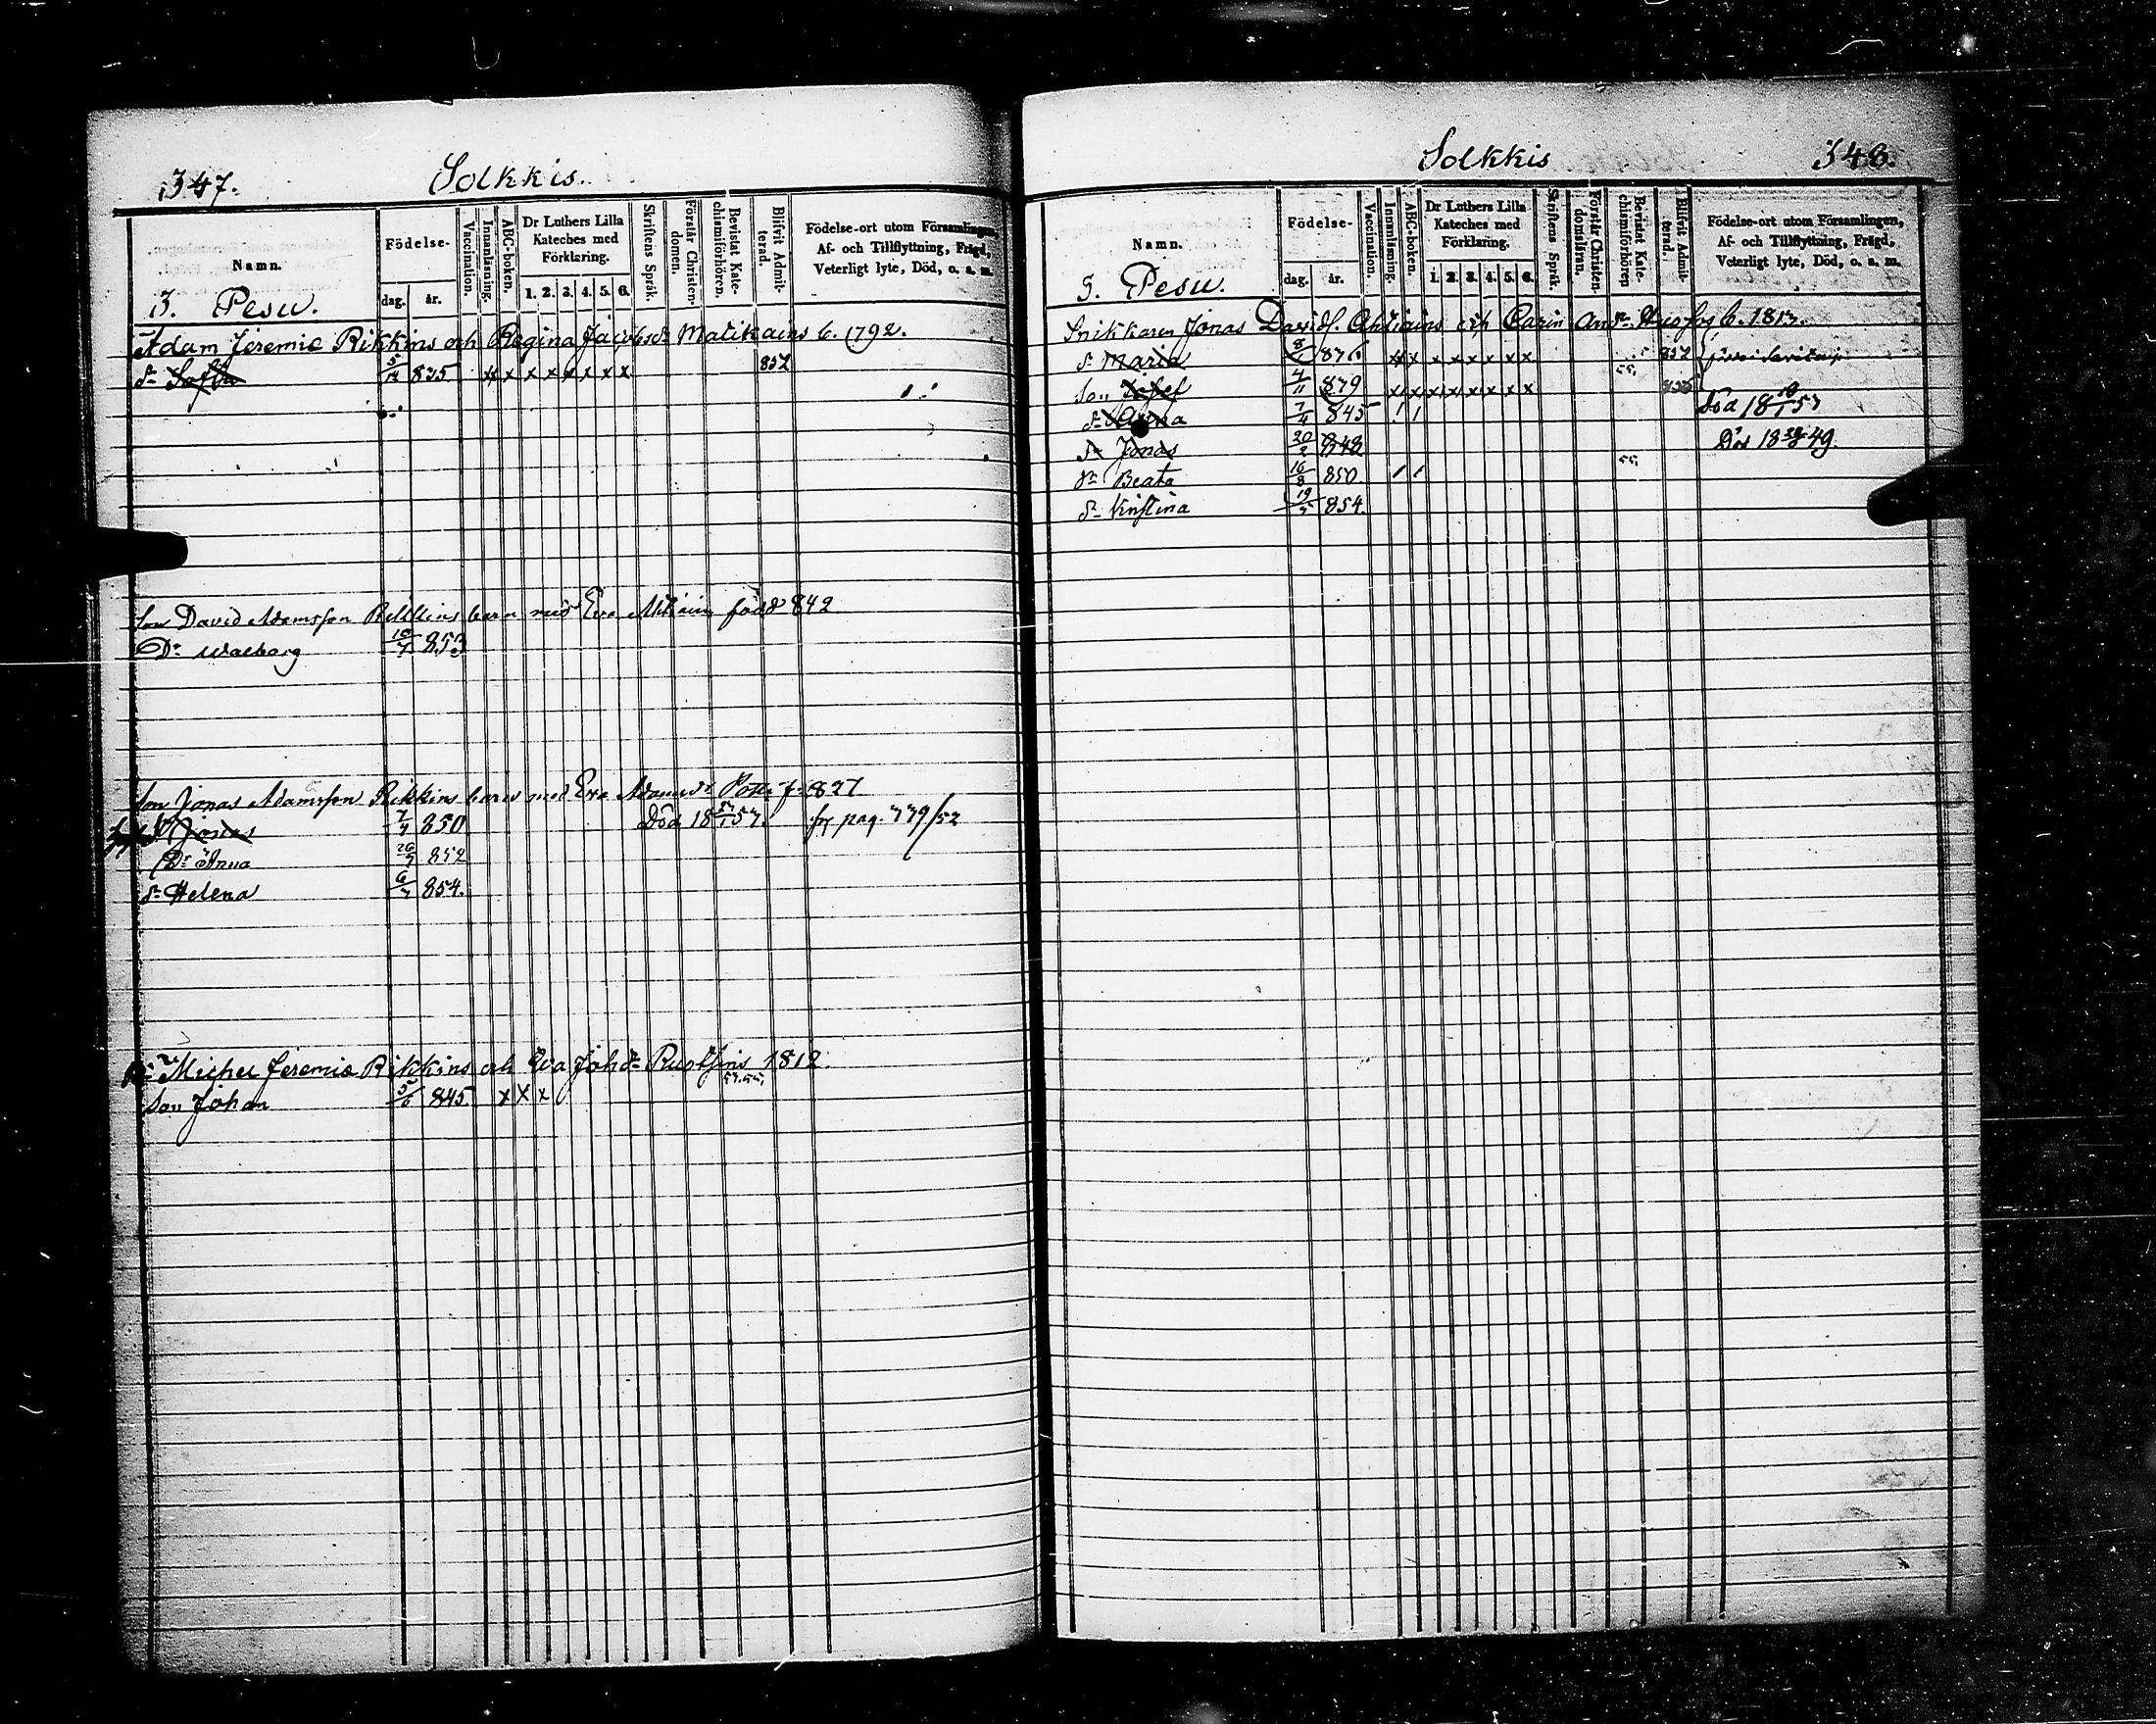 347.
Solkkis.
Namn.
Födelse-
dag. år.
Vaccination.
Innanläsning.
ABC-boken.
Dr Luthers Lilla Kateches med Förklaring.
1. 2. 3. 4. 5. 6.
Skriftens Språk.
Förstår Christendomen.
Bevistat Katechismiförhören.
Blifvit Admitterad.
Födelse-ort utom Församlingen,
Af- och Tillflyttning, Frägd,
Veterligt lyte, Död, o. s. m.
3. Pesu.
Adam Jeremiæ Rikkins och Regina Jacobsdr Matikains 6. 1792.
dr Sofia 5/12 835 x x x x x x x x 852
Son David Adamsson Rikkins barn med Eva född 842
Dr Walborg 10/7 853
Son Jonas Adamsson Rikkins barn med Eva Adamsdr f. 827
Jonas 7/4 850 Död 18 57. pag. 779/52
Dr Anna 26/7 852
dr Helena 6/7 854.
Michel Jeremiæ Rikkins och Eva Johdr 1812.
son Johan 5/6 845 x x x
Solkkis
348.
Namn.
Födelse-
dag. år.
Vaccination.
Innanläsning.
ABC-boken.
Dr Luthers Lilla Kateches med Förklaring.
1. 2. 3. 4. 5. 6.
Skriftens Språk.
Förstår Christendomsläran.
Bevistat Katechismiförhören
Blifvit Admitterad.
Födelse-ort utom Församlingen,
Af- och Tillflyttning, Frägd,
Veterligt lyte, Död, o. s. m.
3. Pesu.
Snikkaren Jonas Davidss. Ahtiains och Carin Andrdr 6. 1813.
dr Maria 8/1 x x x x x x x x 852
son Josef 4/11 x x x x x x x x
dr Anna 7/4 845 Död 18 57
Jonas 20/2 848 Död 18 49.
dr Beata 16/8 850
dr Kristina 19/5 854.